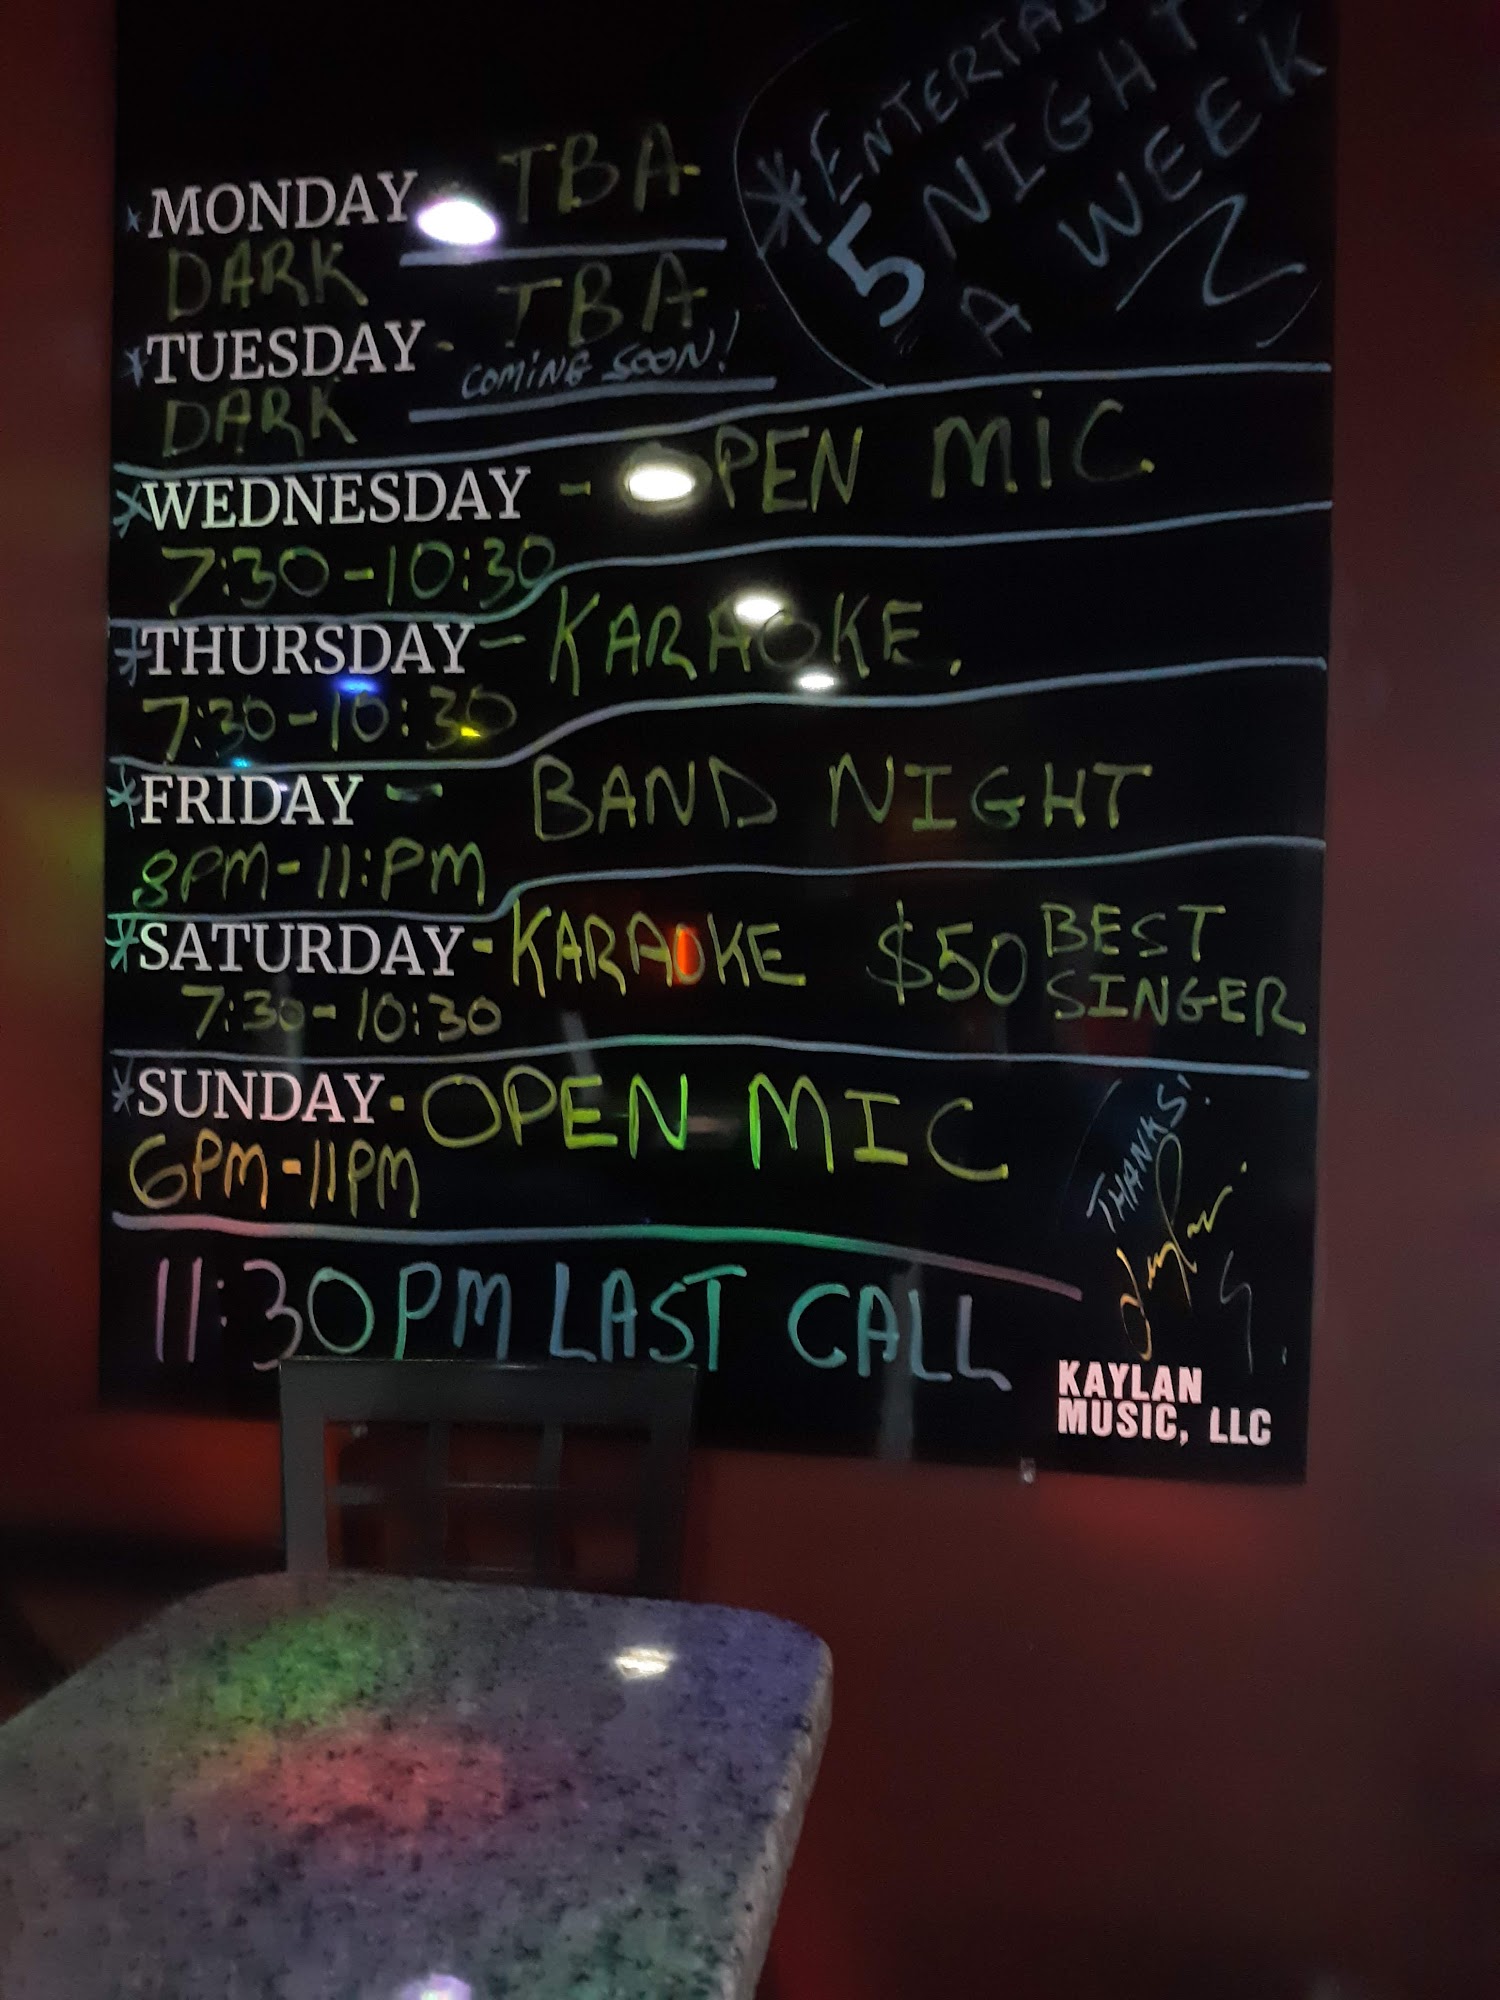 *ENTERTAI
5 NIGHT
A WEEK
*MONDAY - TBA
DARK
*TUESDAY - TBA
COMING SOON!
DARK
*WEDNESDAY - OPEN MIC
7:30-10:30
*THURSDAY - KARAOKE.
7:30-10:30
*FRIDAY - BAND NIGHT
8PM-11:PM
*SATURDAY - KARAOKE $50 BEST
SINGER
7:30-10:30
*SUNDAY - OPEN MIC
6PM-11PM
THANKS!
11:30PM LAST CALL
KAYLAN
MUSIC, LLC